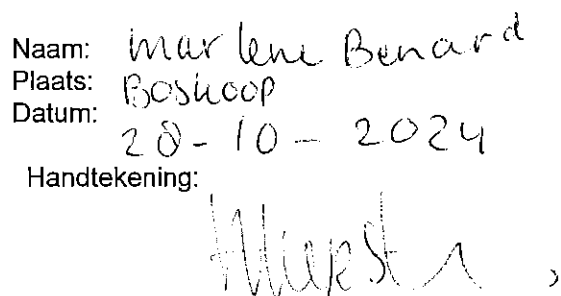 Naam: Marlene Benard
Plaats: Boskoop
Datum:
28-10-2024
Handtekening: